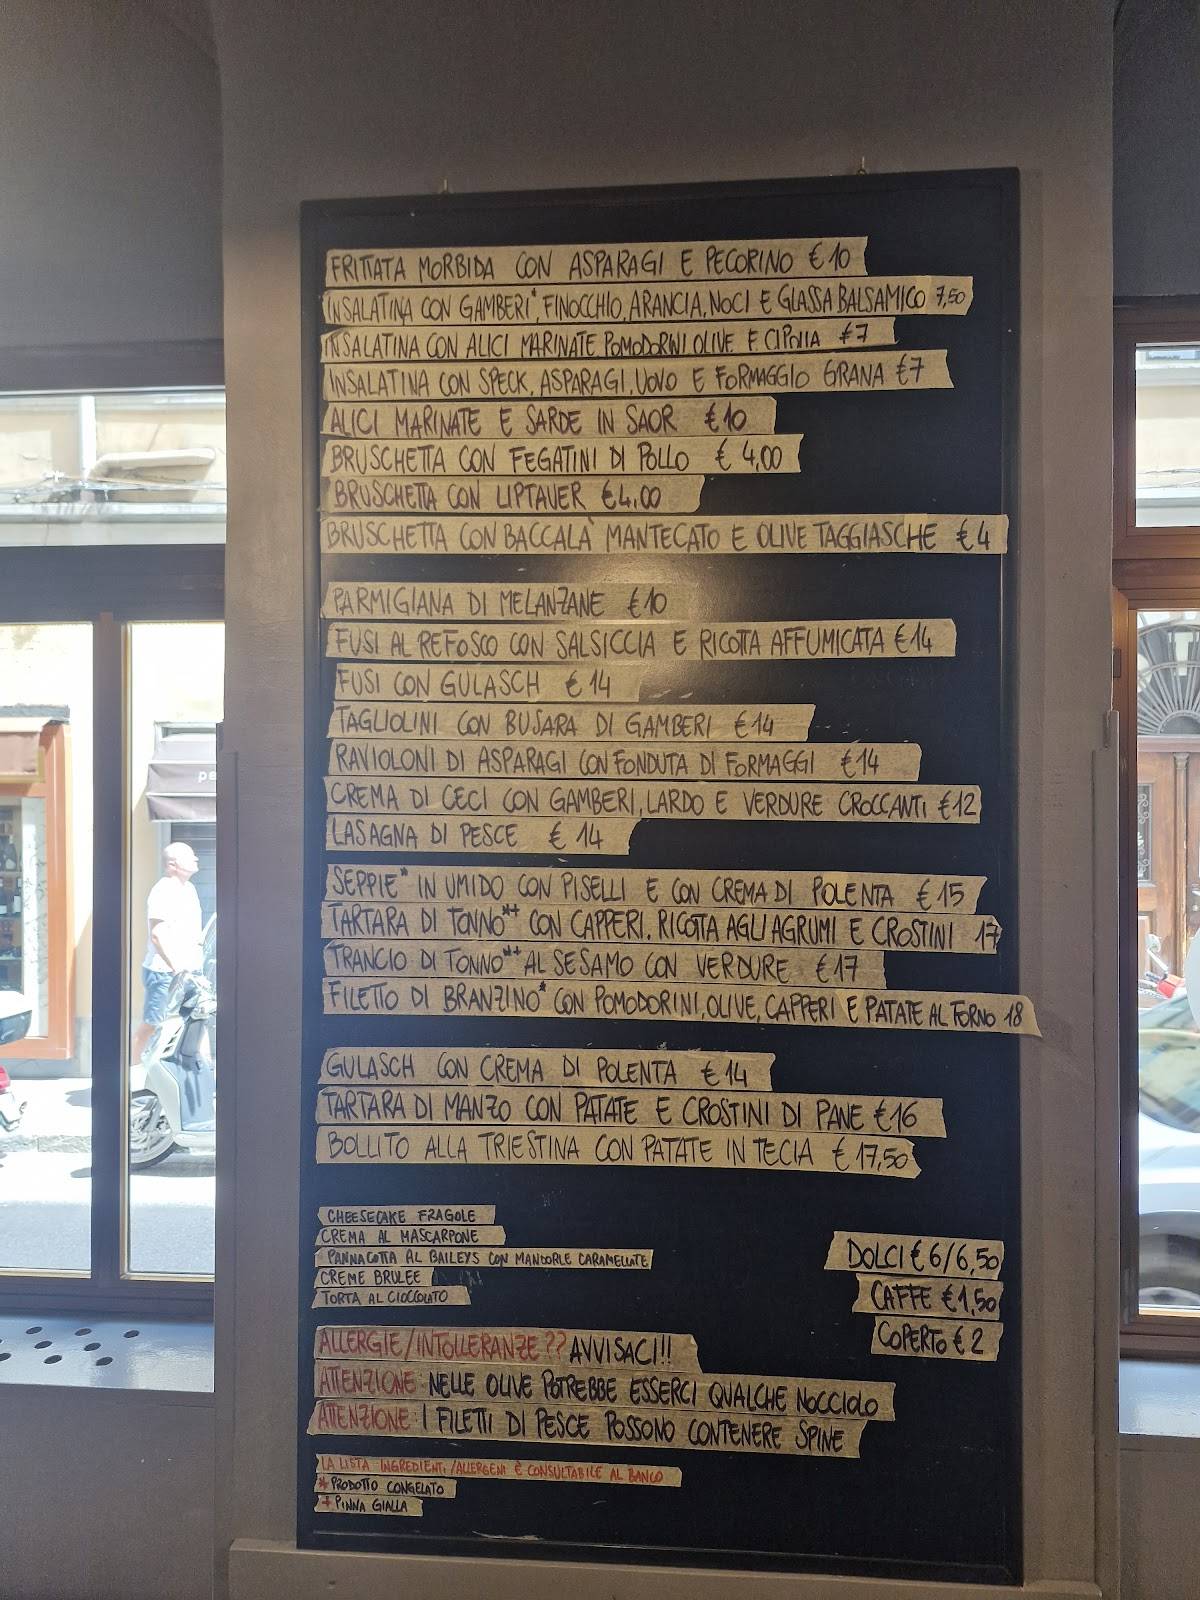 FRITTATA MORBIDA CON ASPARAGI E PECORINO €10
INSALATINA CON GAMBERI*, FINOCCHIO, ARANCIA, NOCI E GLASSA BALSAMICO 7,50
INSALATINA CON ALICI MARINATE POMODORINI OLIVE E CIPOLLA €7
INSALATINA CON SPECK, ASPARAGI, UOVO E FORMAGGIO GRANA €7
ALICI MARINATE E SARDE IN SAOR €10
BRUSCHETTA CON FEGATINI DI POLLO € 4,00
BRUSCHETTA CON LIPTAUER €4,00
BRUSCHETTA CON BACCALÀ MANTECATO E OLIVE TAGGIASCHE €4
PARMIGIANA DI MELANZANE €10
FUSI AL REFOSCO CON SALSICCIA E RICOTTA AFFUMICATA €14
FUSI CON GULASCH €14
TAGLIOLINI CON BUSARA DI GAMBERI €14
RAVIOLONI DI ASPARAGI CON FONDUTA DI FORMAGGI €14
CREMA DI CECI CON GAMBERI, LARDO E VERDURE CROCCANTI €12
LASAGNA DI PESCE € 14
SEPPIE* IN UMIDO CON PISELLI E CON CREMA DI POLENTA €15
TARTARA DI TONNO*+ CON CAPPERI, RICOTTA AGLI AGRUMI E CROSTINI 17
TRANCIO DI TONNO*+ AL SESAMO CON VERDURE €17
FILETTO DI BRANZINO* CON POMODORINI, OLIVE, CAPPERI E PATATE AL FORNO 18
GULASCH CON CREMA DI POLENTA €14
TARTARA DI MANZO CON PATATE E CROSTINI DI PANE €16
BOLLITO ALLA TRIESTINA CON PATATE IN TECIA €17,50
CHEESECAKE FRAGOLE
CREMA AL MASCARPONE
PANNACOTTA AL BAILEYS CON MANDORLE CARAMELLATE
CREME BRULEE
TORTA AL CIOCCOLATO
DOLCI €6/6,50
CAFFE €1,50
COPERTO €2
ALLERGIE/INTOLLERANZE?? AVVISACI!!
ATTENZIONE: NELLE OLIVE POTREBBE ESSERCI QUALCHE NOCCIOLO
ATTENZIONE: I FILETTI DI PESCE POSSONO CONTENERE SPINE
LA LISTA INGREDIENTI/ALLERGENI È CONSULTABILE AL BANCO
* PRODOTTO CONGELATO
+ PINNA GIALLA